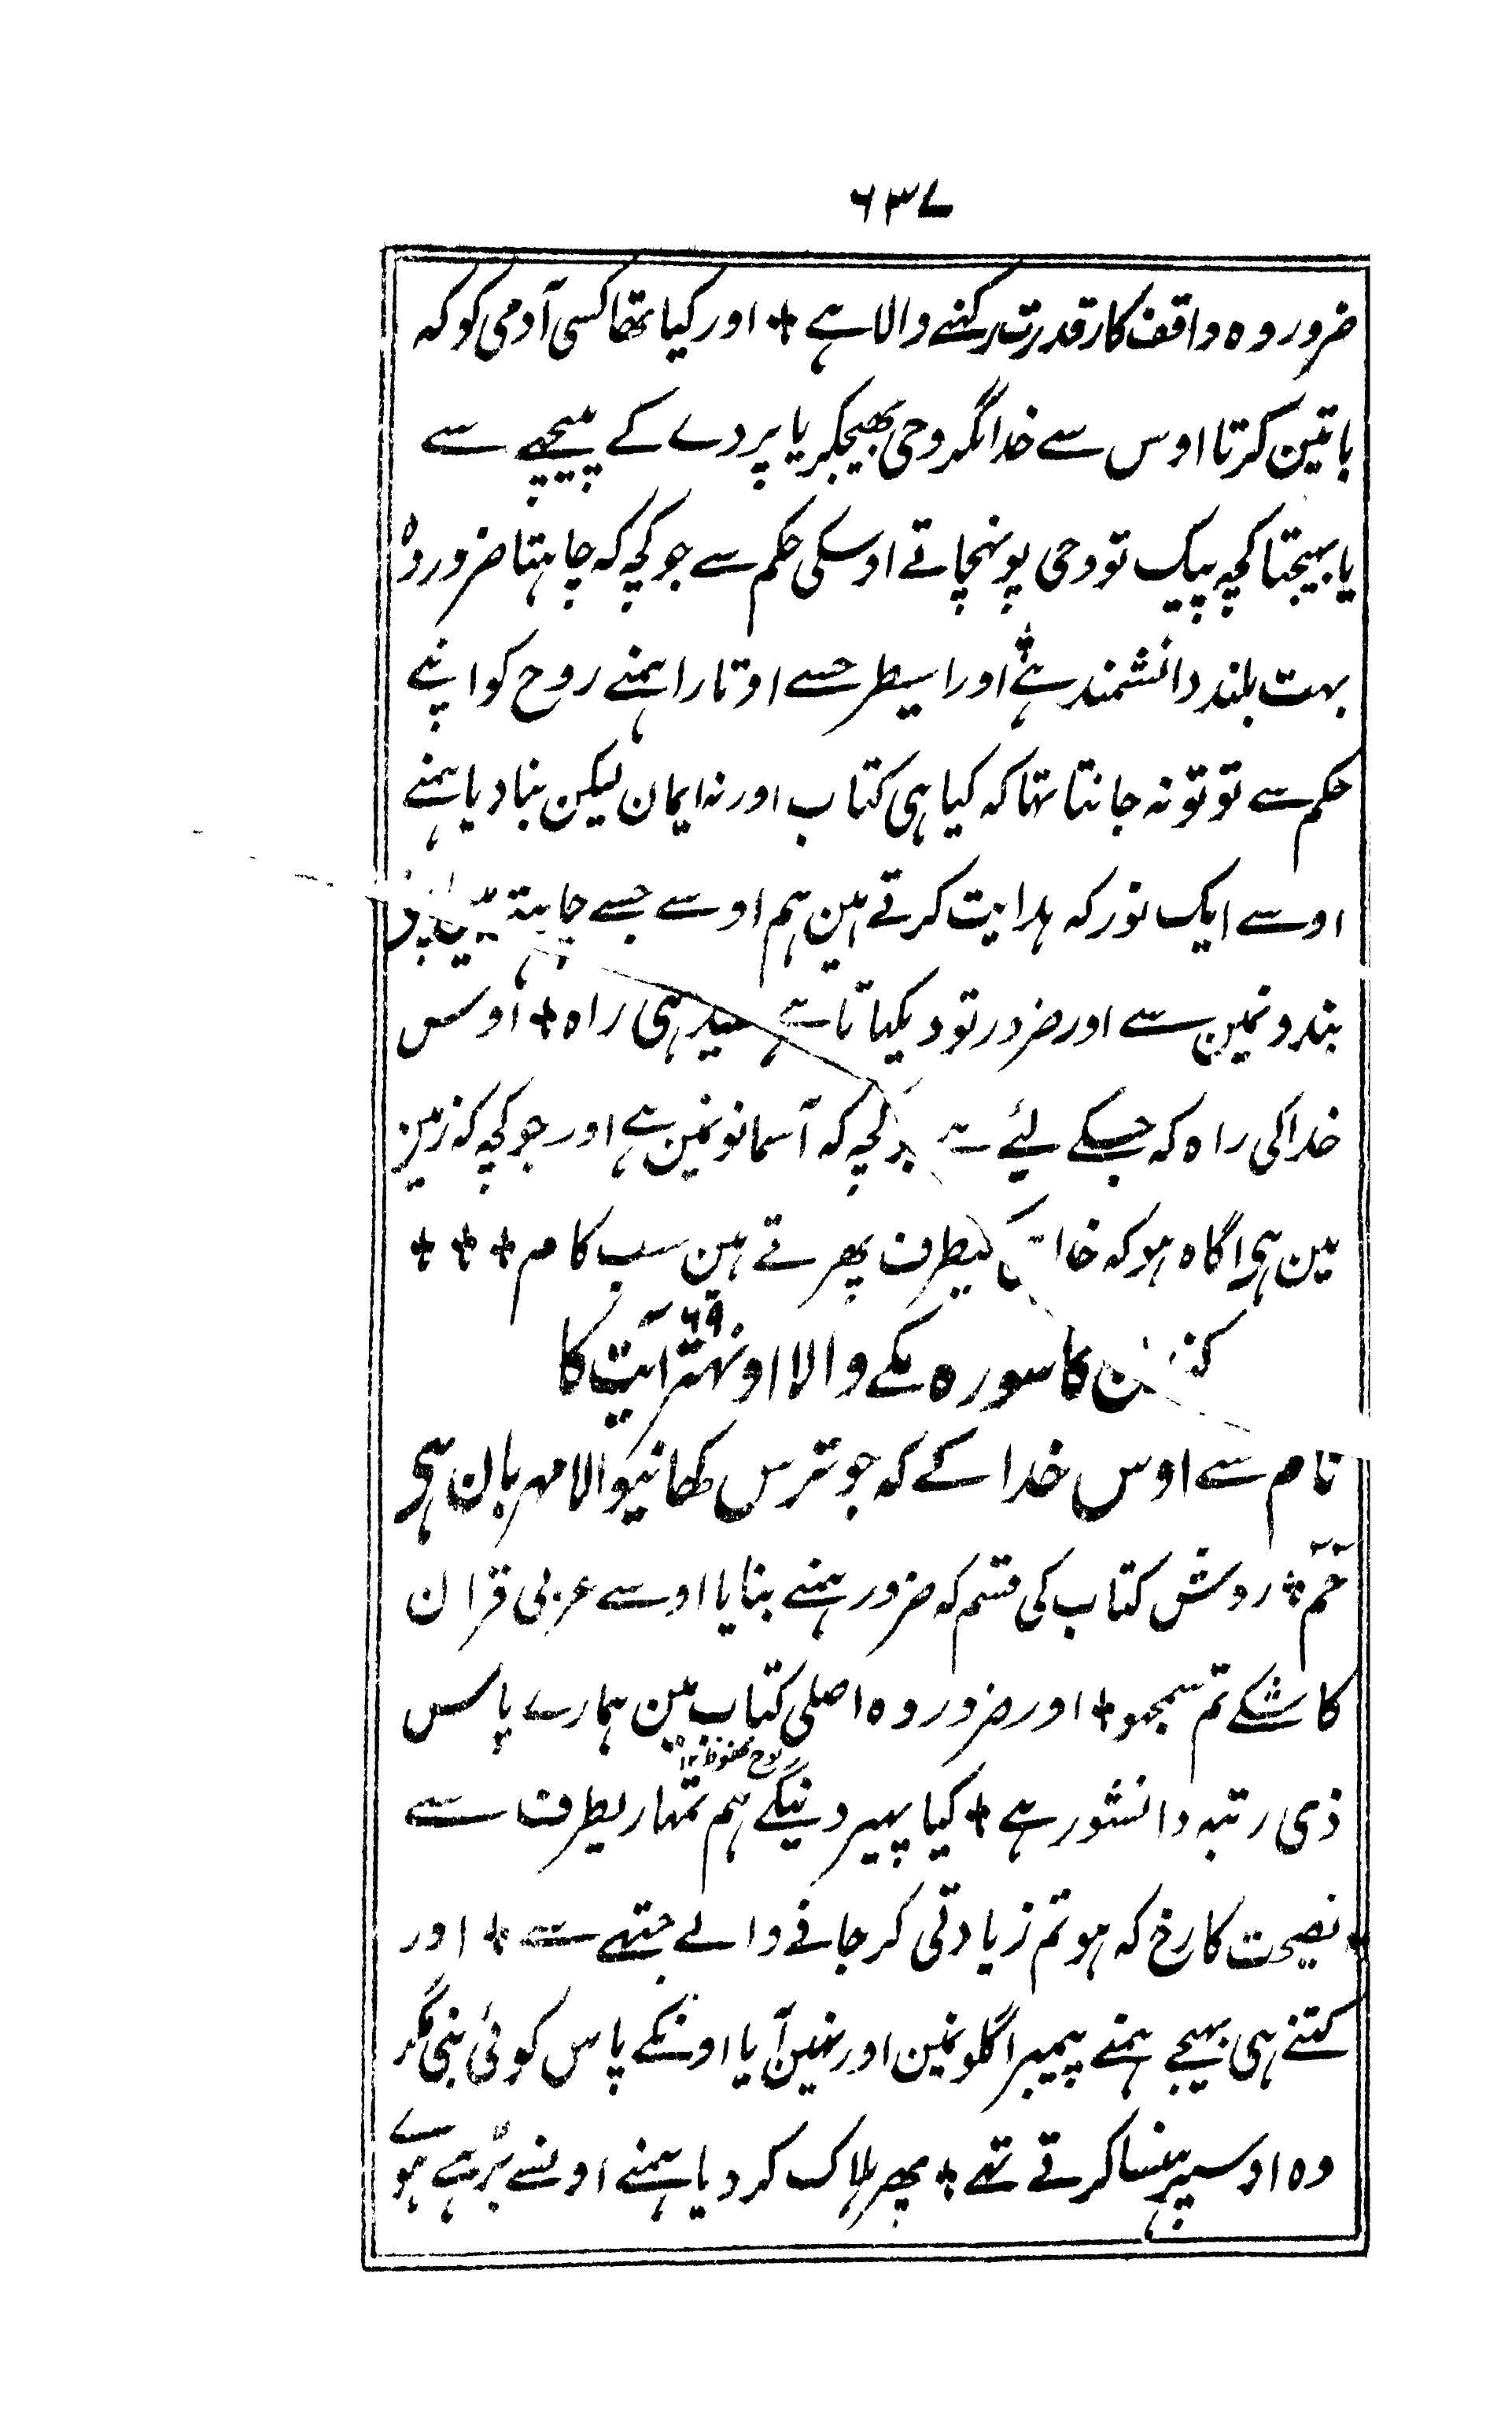 ۶۳۷
ضرور وہ واقف کار قدرت رکہنے والا ہے + اور کیا تھا کسی آدمی کو کہ
باتین کرتا اوس سے خدا مگر وحی بھیجکر یا پردے کے پیچھے سے
یا بہیجتا کچہ پیک تو وحی پونہچاتے اوسکی حکم سے جو کچہ کہ چاہتا ضرور وہ
بہت بلند دانشمند ہے + اور اسیطرحسے اوتارا ہمنے روح کو اپنے
حکم سے تو تو نہ جانتا تہا کہ کیا ہی کتاب اور نہ ایمان لیکن بنا دیا ہمنے
اوسے ایک نور کہ ہدایت کرتے ہین ہم اوسے جسے چاہتے ہین اپنے
بندونمین سے اور ضرور تو دیکہاتا ہے سیدہی راہ + اوس
خدا کی راہ کہ جسکے لئے ہے کچہ کہ آسمانونمین ہے اور جو کچہ کہ زمین
مین ہی اگاہ ہو کہ خدا کیطرف پھرتے ہین سب کام + + +
کا سورہ مکے والا اونہتر آیت کا ۶۹
نام سے اوس خدا کے کہ جو ترس کھانیوالا مہربان ہی
حٰمٓ + روشن کتاب کی قسم کہ ضرور ہمنے بنایا اوسے عربی قران
کاشکے تم سمجہو + اور ضرور وہ اصلی کتاب مین ہمارے پاس
لوح محفوظ ۱۲
ذی رتبہ دانشور ہے + کیا پہیر دینگے ہم تمہاریطرف سے
نصیحت کا رخ کہ ہو تم زیادتی کر جانے والے جتہے سے + اور
کتنے ہی بہیجے ہمنے پیمبر اگلونمین اور نہین آیا اونکے پاس کوئی نبی مگر
وہ اوسپر ہنسا کرتے تھے + پھر ہلاک کر دیا ہمنے اونسے بڑہے ہوے